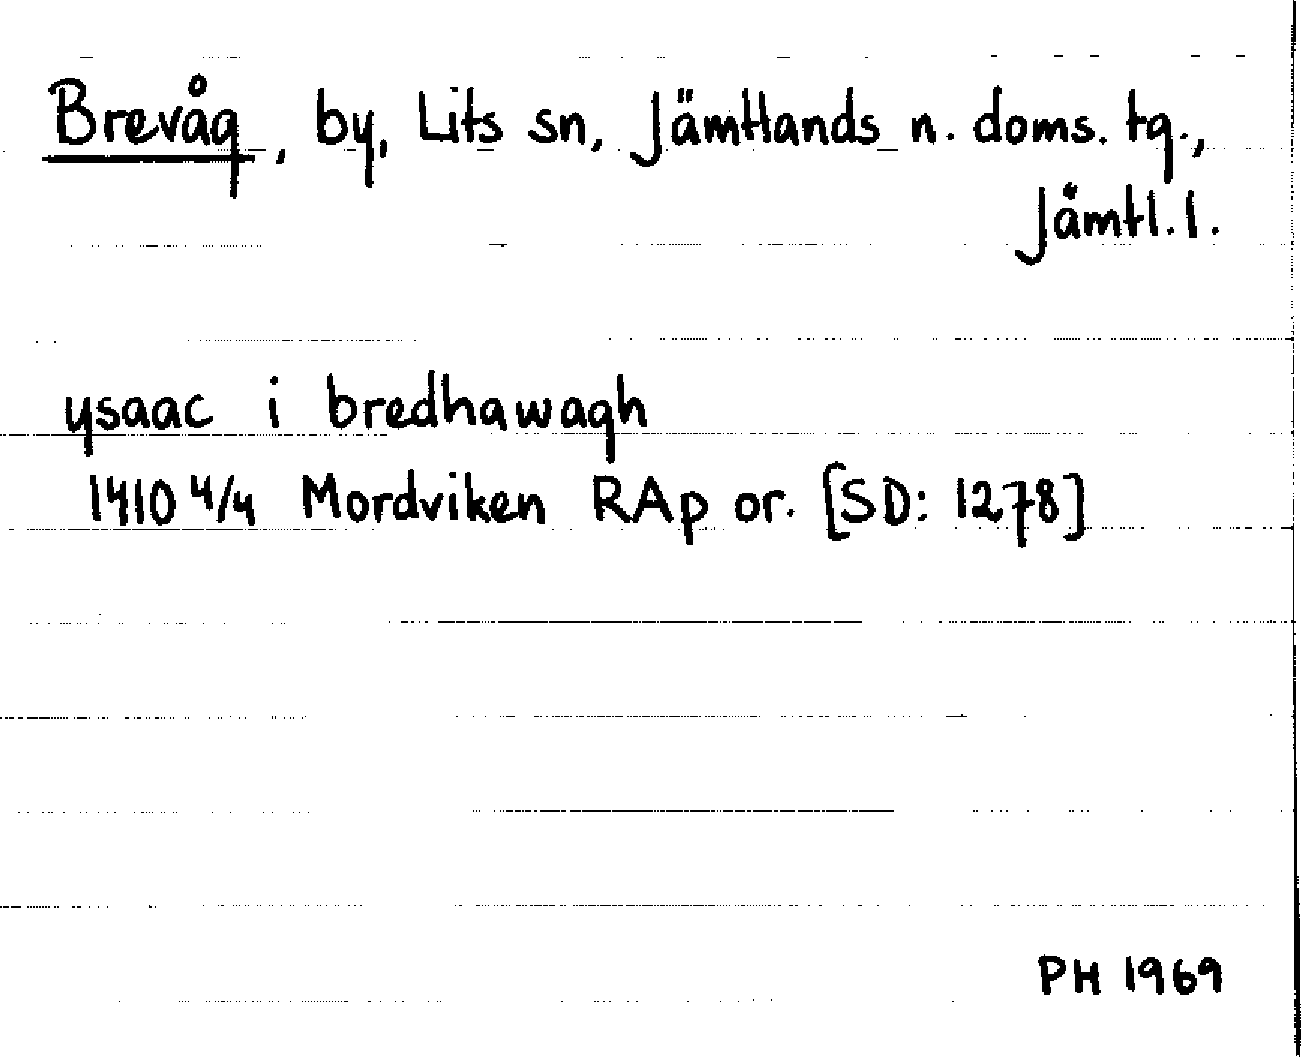 Brevåg, by, Lits sn, Jämtlands n. doms. tg.,
Jämtl. l.
ysaac i bredhawagh
1410 4/4 Mordviken RAp or. [SD: 1278]
PH 1969